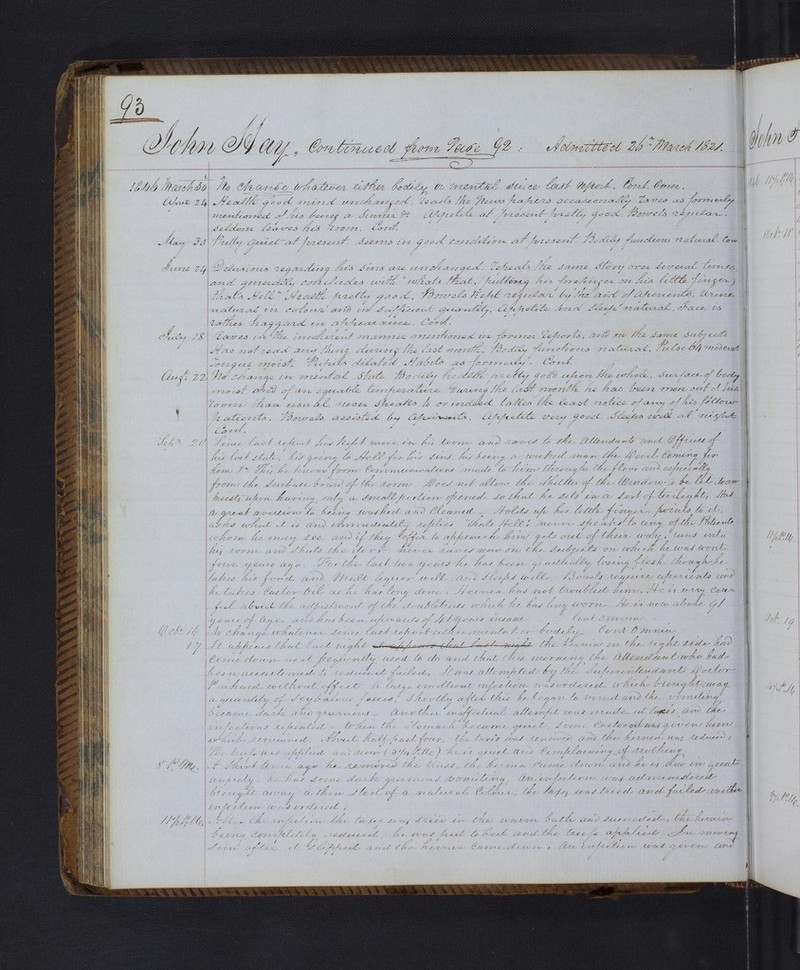 93
John Hay. Continued from Page 92. Admitted 26th March 1821.
1846 March 30 No change whatever either bodily or mental since last report. Cont. Omn.
April 24 Health good mind unchanged. reads the News papers occasionally raves as formerly
mentioned of his being a Sinner &c Appetite at present pretty good. Bowels regular.
seldom leaves his room. Cont.
May 30 Pretty quiet at present. seems in good condition at present. Bodily functions natural. Con
June 24 Delusions regarding his sins are unchanged. repeats the same story over several times
and generally concludes with "whats that, (putting his forefinger on his little finger)
that's Hell" Health pretty good. Bowels kept regular by the aid of Aperients. Urine
natural in colour and in sufficient quantity. Appetite and sleep natural, Face is
rather haggard in appearance. Cont.
July 18 Raves in the incoherent manner mentioned in former reports, and on the same subjects
Has not read any thing during the last month. Bodily functions natural. Pulse 64 moderate
tongue moist. Pupils dilated. Habits as formerly. Cont.
Augt. 22 No change in mental state. Bodily health pretty good upon the whole. surface of body
moist and of an equable temperature. During the last month he has been more out of his
room than usual never speaks to or indeed takes the least notice of any of his fellow
patients. Bowels assisted by Aperients. Appetite very good. Sleeps well at night
Cont.
Sepr. 20 Since last report has kept more in his room and raves to the Attendants and Officers of
his lost state, his going to Hell for his sins, his being a wicked man the Devil coming for
him &c This he knows from Communications made to him through the floor and especially
from the surbase board of the room Does not allow the shutter of the Window to be let down
insists upon having only a small portion opened so that he sits in a sort of twilight. Has
a great aversion to being washed and cleaned. Holds up his little finger, points to it
asks what it is and immediately replies "that's Hell." never speaks to any of the Patients
whom he may see and if they offer to approach him gets out of their way, runs into
his room and shuts the door. never raves now on the subjects on which he was wont
four years ago. For the last two years he has been gradually losing flesh though he
takes his food and Malt liquor well and sleeps well Bowels require aperients and
he takes Castor Oil as he has long done. Hernia has not troubled him. He is very care
ful about the adjustment of the double truss which he has long worn. He is now above 91
years of Age and has been upwards of 41 years insane Cont omnia
Octr. 16 No change whatever since last report either mental or bodily. Cont Omnia
17 It appears that last night it appears that last night the hernia on the right side had
come down as it frequently used to do and that this morning the Attendant who had
been accustomed to reduce it failed, It was attempted by the Superintendant Doctor
without effect A large emollient injection was ordered which brought away
a quantity of Scybalous faeces. Shortly after this he began to vomit and the vomiting
became dark and grumous. Another ineffectual attempt was made at taxis and the
injections repeated. When the stomach became quiet some Castor oil was given him
which remained. About half past four the taxis was renewed and the hernia was reduced.
The truss was applied and now he is quiet and complaining of nothing
8 P.M. A Short time ago he removed the truss, the hernia came down and he is now in great
anxiety he has some dark grumous vomiting. An injection was administered
brought away a thin stool of a natural Colour, the taxis was tried and failed another
injection was ordered.
11½ P.M. After the injection the taxis was tried in the warm bath and succeeded, the hernia
being completely reduced, he was put to bed and the truss applied In moving
soon after it slipped and the hernia came down. An injection was given and
John
11½ P.M.
Oct. 19